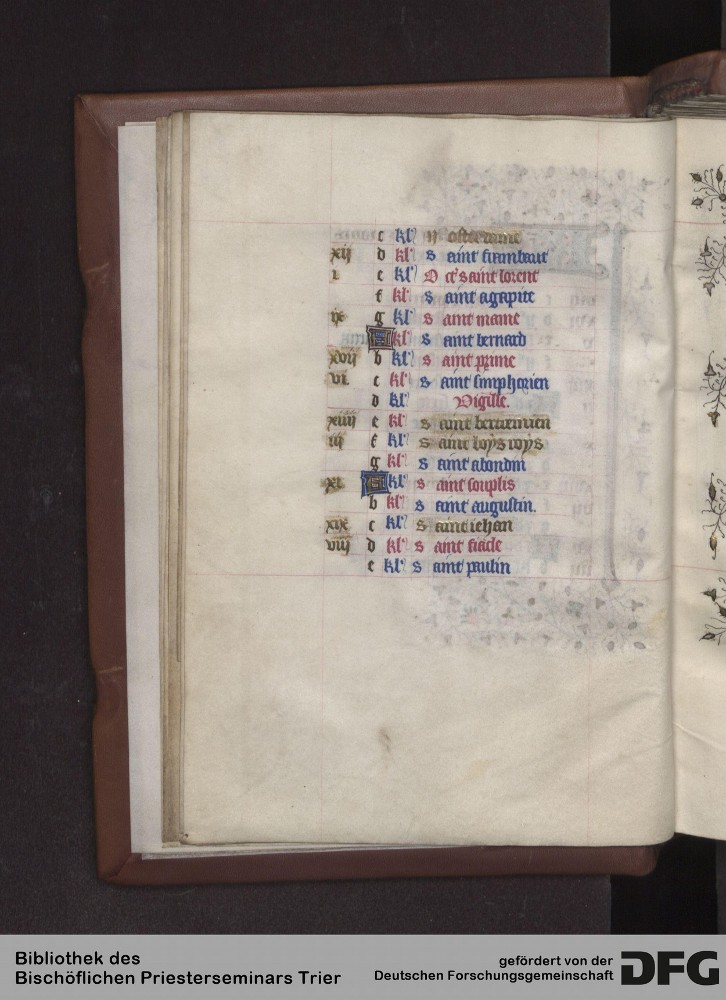 c kl' n ostre dame
xij d kl' s aint frambaut
i e kl' O ct' saint lorent
f kl' s aint agapite
ix g kl' s aint mame
A kl' s aint bernard
xvij b kl' s aint prime
vi c kl' s aint simphorien
d kl' Vigille.
xiiij e kl' s aint bertremieu
iij f kl' s aint loys roys
g kl' s aint abondin
xi A kl' s aint souplis
b kl' s aint augustin.
xix c kl' s aint iehan
viij d kl' s aint fiacle
e kl' s aint paulin
Bibliothek des
Bischöflichen Priesterseminars Trier
gefördert von der
Deutschen Forschungsgemeinschaft
DFG